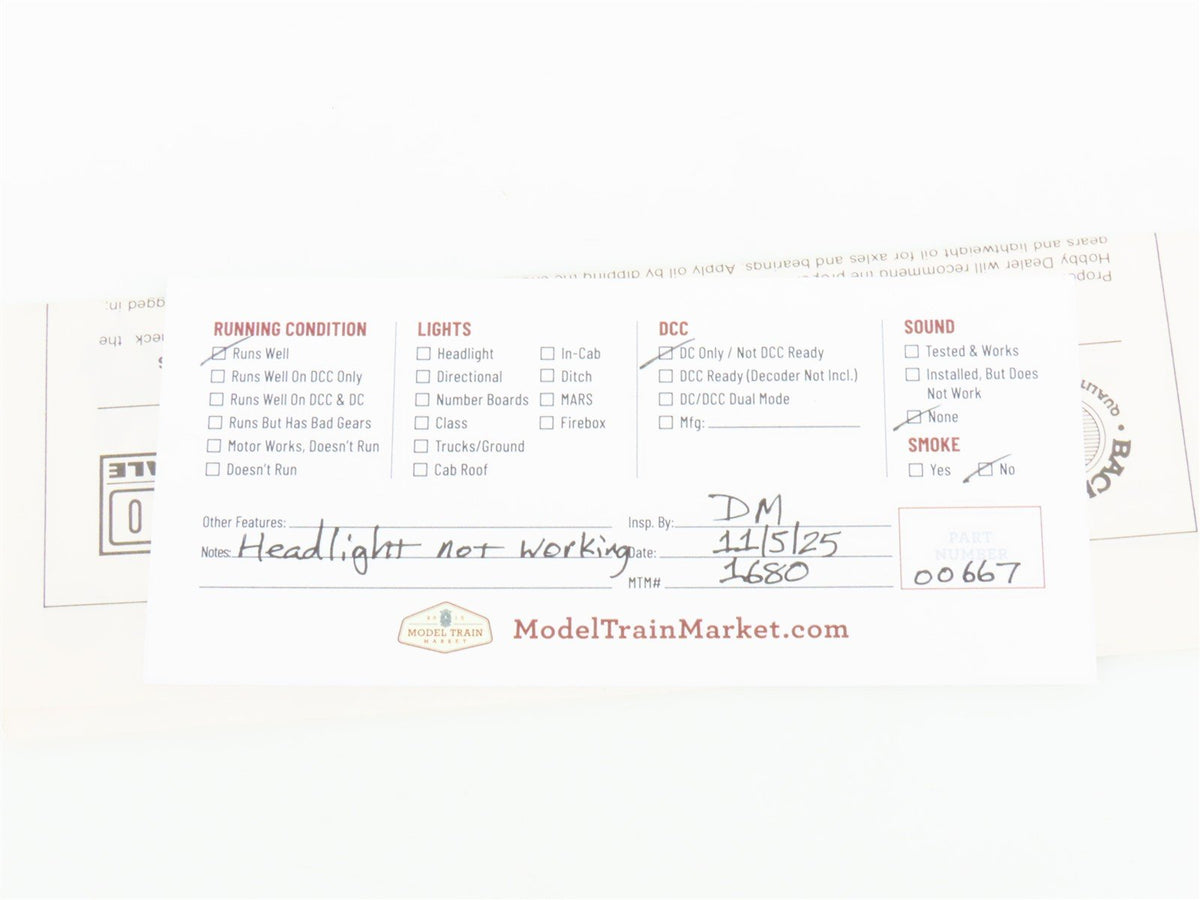 gears and lightweight oil for axles and bearings. Apply oil by dipping the
Hobby Dealer will recommend the
gged in:
the
RUNNING CONDITION
Runs Well
Runs Well On DCC Only
Runs Well On DCC & DC
Runs But Has Bad Gears
Motor Works, Doesn't Run
Doesn't Run
LIGHTS
Headlight
Directional
Number Boards
Class
Trucks/Ground
Cab Roof
In-Cab
Ditch
MARS
Firebox
DCC
DC Only / Not DCC Ready
DCC Ready (Decoder Not Incl.)
DC/DCC Dual Mode
Mfg:
SOUND
Tested & Works
Installed, But Does
Not Work
None
SMOKE
Yes No
Other Features:
Notes: Headlight not working
Insp. By: DM
Date: 11/5/25
MTM# 1680
PART
NUMBER
00667
MODEL TRAIN
MARKET
ModelTrainMarket.com